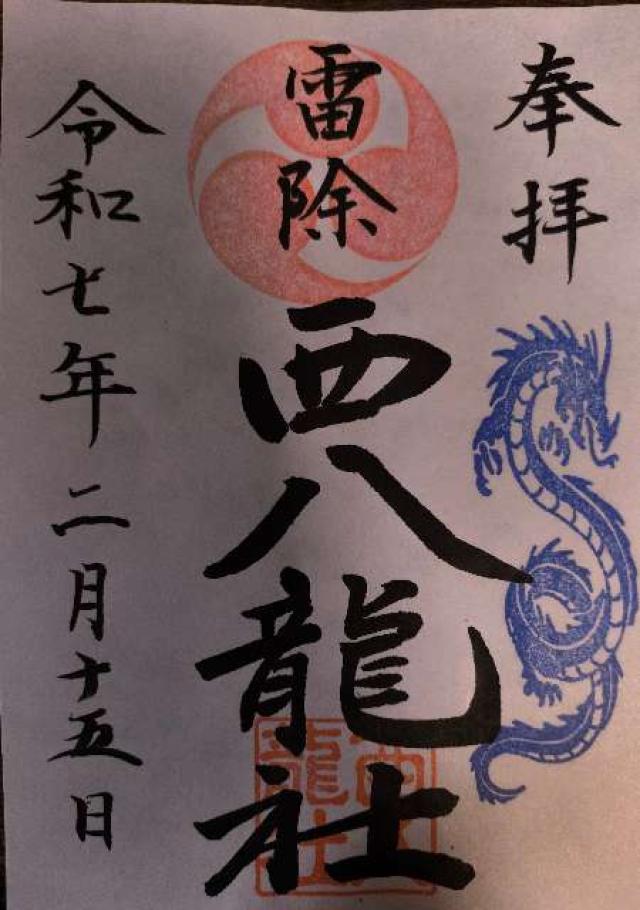 奉拝
雷除
西八龍社
令和七年二月十五日